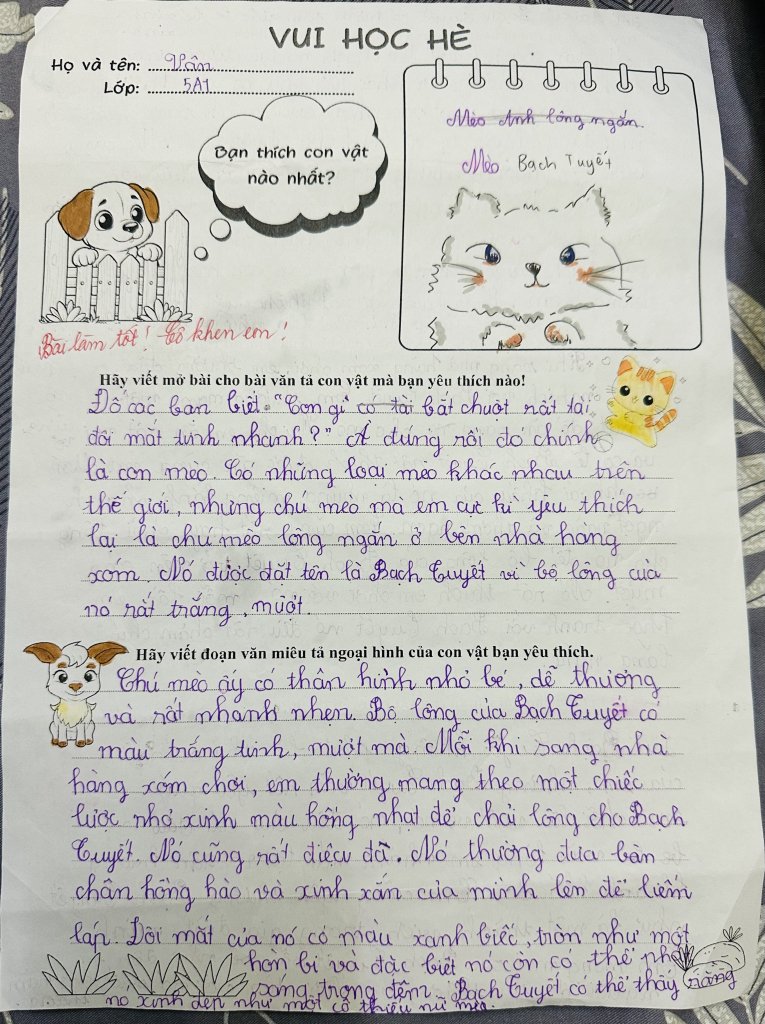 VUI HỌC HÈ
Họ và tên: Vân
Lớp: 5A1
Mèo Anh lông ngắn.
Mèo Bạch Tuyết
Bạn thích con vật
nào nhất?
Bài làm tốt! Cô khen em!
Hãy viết mở bài cho bài văn tả con vật mà bạn yêu thích nào!
Đố các bạn biết "Con gì có tài bắt chuột rất tài
đôi mắt tinh nhanh?" A đúng rồi đó chính
là con mèo. Có những loại mèo khác nhau trên
thế giới, nhưng chú mèo mà em cực kì yêu thích
lại là chú mèo lông ngắn ở bên nhà hàng
xóm. Nó được đặt tên là Bạch Tuyết vì bộ lông của
nó rất trắng, mượt.
Hãy viết đoạn văn miêu tả ngoại hình của con vật bạn yêu thích.
Chú mèo ấy có thân hình nhỏ bé, dễ thương
và rất nhanh nhẹn. Bộ lông của Bạch Tuyết có
màu trắng tinh, mượt mà. Mỗi khi sang nhà
hàng xóm chơi, em thường mang theo một chiếc
lược nhỏ xinh màu hồng nhạt để chải lông cho Bạch
Tuyết. Nó cũng rất điệu đà. Nó thường đưa bàn
chân hồng hào và xinh xắn của mình lên để liếm
láp. Đôi mắt của nó có màu xanh biếc, tròn như một
hòn bi và đặc biệt nó còn có thể phát
sáng trong đêm. Bạch Tuyết có thể thấy rằng
nó xinh đẹp như một cô thiếu nữ mèo.